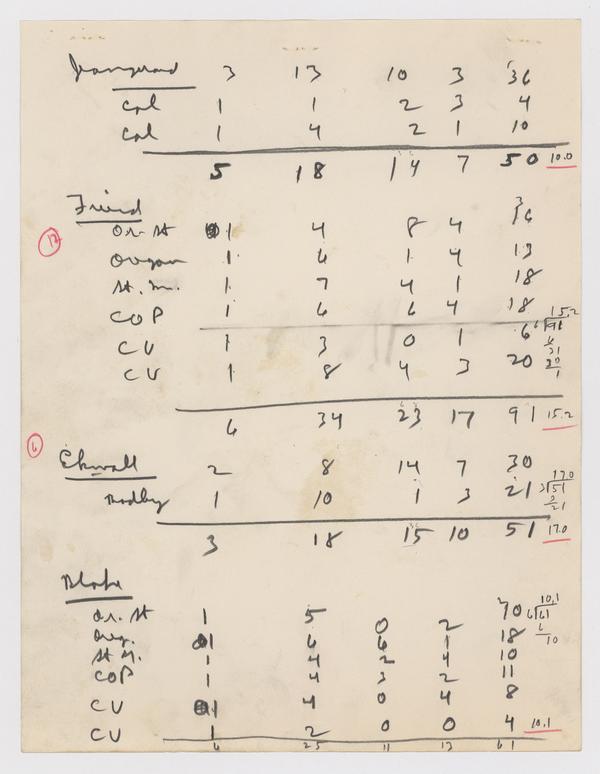 3 13 10 3 36
Cal 1 1 2 3 4
Cal 1 4 2 1 10
5 18 14 7 50 10.0
Friend
Or. St 1 4 8 4 16
12
Oregon 1 6 1 4 13
St. M. 1 7 4 1 18
COP 1 6 6 4 18 15.2
CU 1 3 0 1 6 6 91
CU 1 8 4 3 20
6 34 23 17 91 15.2
6
Ekwall 2 8 14 7 30 17.0
Bradley 1 10 1 3 21 3 51
3 18 15 10 51 17.0
Blake
Or. St 1 5 0 2 10 10.1
Oreg. 1 6 6 1 18 6 61
St M. 1 4 2 4 10
COP 1 4 3 2 11
CU 1 4 0 4 8
CU 1 2 0 0 4 10.1
6 25 11 13 61